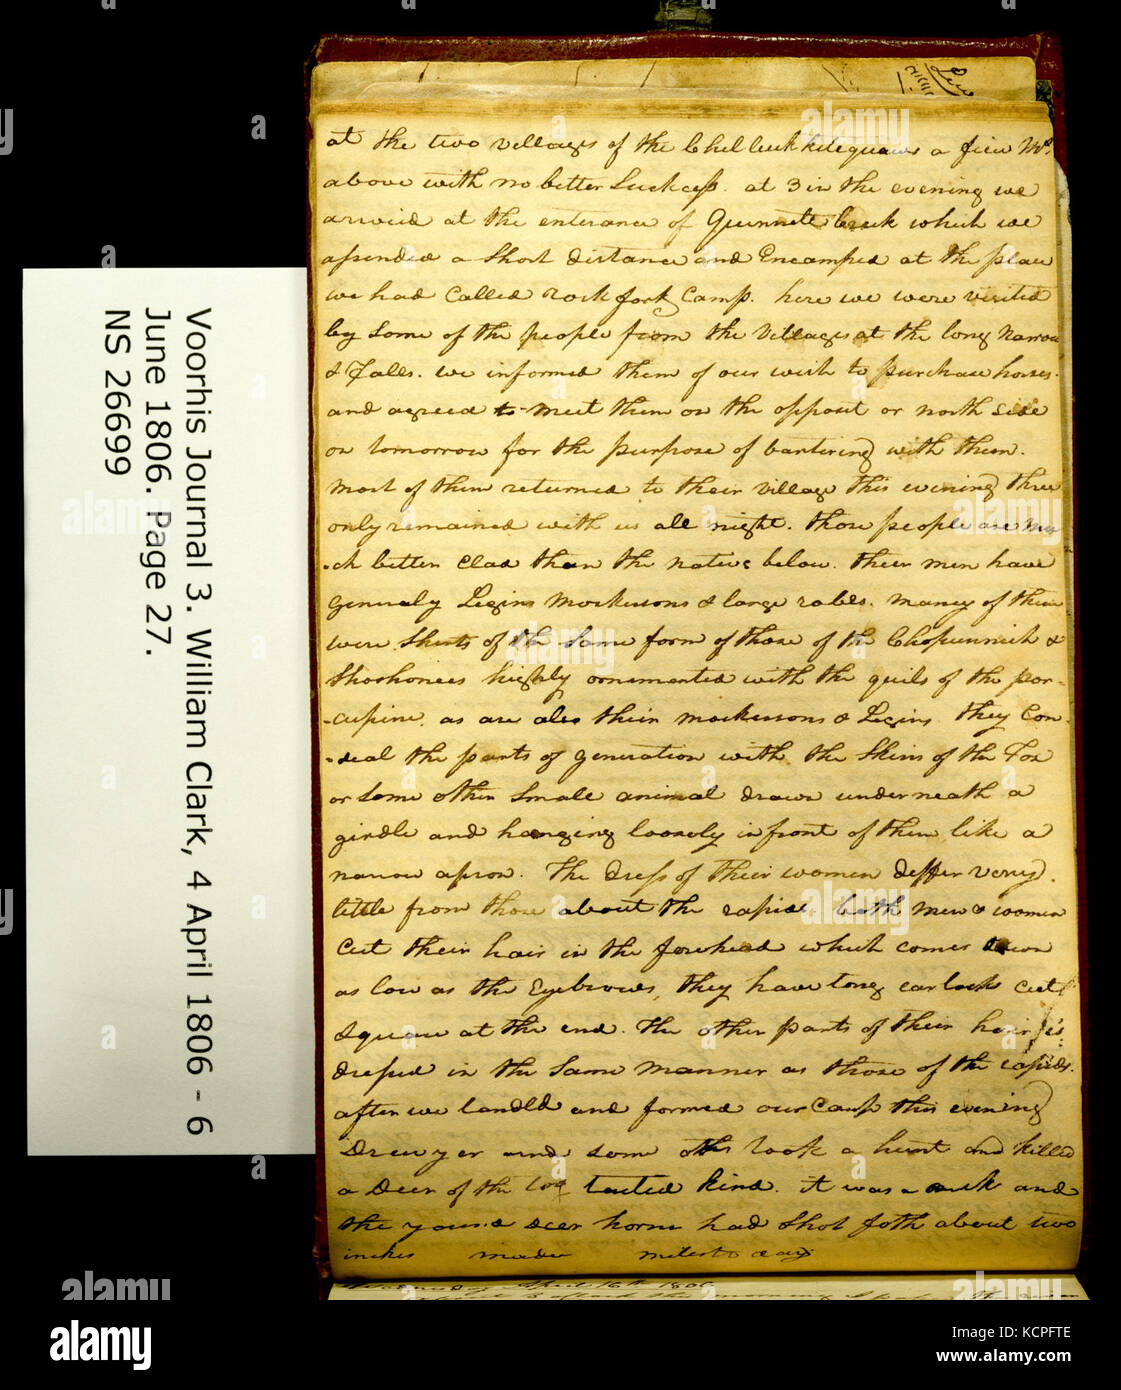 at the two villages of the Chilluckkitequaws a fiew Ms.
above with no better Suckcess. at 3 in the evening we
arivied at the enterance of Quinnete Creek which we
assended a Short distance and Encamped at the place
we had Called rock fork Camp. here we were visited
by Some of the people from the Villages at the long Narrow
& Falls. we informed them of our wish to purchase horses.
and agreed to meet them on the opposit or north Side
on tomorrow for the purpose of bartering with them.
most of them returned to their village this evening three
only remained with us all night. those people are mu
-ch better Clad than the nativs below. their men have
generaly Legins mockersons & large robes. many of them
were Shirts of the Same form of those of the Chopunnish &
Shoshonees highly ornimented with the quils of the por-
-cupine. as are also their mockersons & Legins. they Con-
-seal the parts of generation with the Skins of the Fox
or Some other Small animal drawn underneath a
girdle and hanging loosely in front of them like a
narrow apron. The dress of their women differ very
little from those about the rapids. both men & women
Cut their hair in the forehead which comes down
as low as the Eyebrows, they have long earlocks cut
Square at the end. The other parts of their hair is
dressed in the Same manner as those of the rapids.
after we landed and formed our Camp this evening
Drewyer and some others took a hunt and killed
a Deer of the long tailed kind. it was a buck and
the young deer horns had Shot foth about two
inches made miles to day
April 16th 1806
Voorhis Journal 3. William Clark, 4 April 1806 - 6
June 1806. Page 27.
NS 26699
alamy
a
Image ID: KCPFTE
www.alamy.com